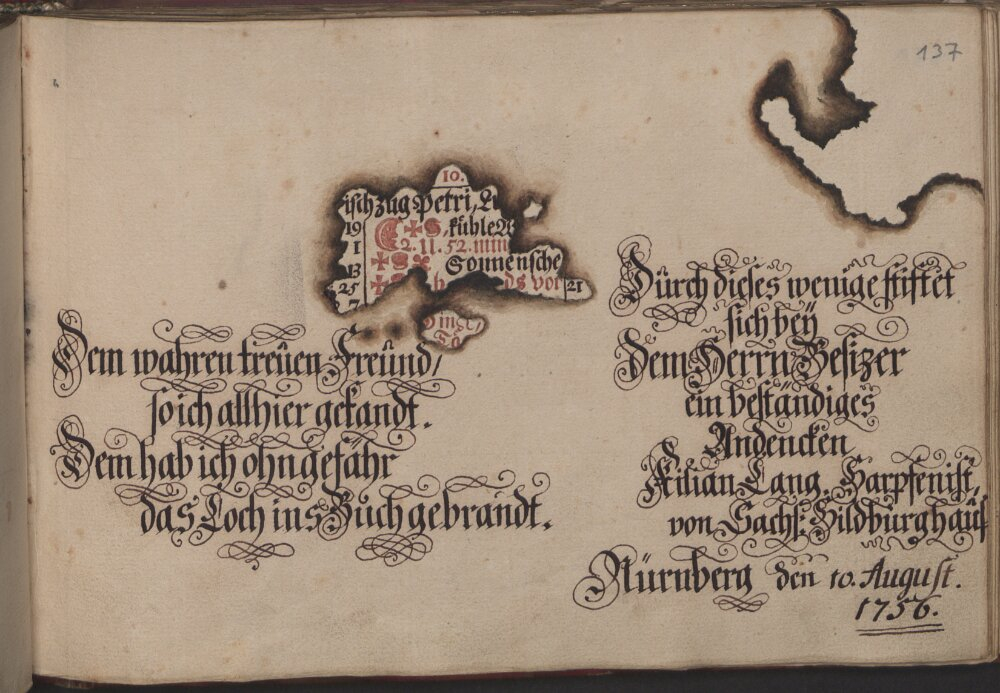 137
10.
ischzug Petri,
19 kühle
1 2. 11. 52. min
13 Sonnensche
25 ds vor 21
7
Dem wahren treüen Freünd/
so ich allhier gekandt.
Dem hab ich ohngefähr
das Loch ins Buch gebrandt.
Dürch dieses wenige stifftet
sich beÿ
Dem Herrn Besizer
ein beständiges
Andencken
Kilian Lang Harpfenist,
von Sachs: Hildburghaüs
Nürnberg den 10. August.
1756.